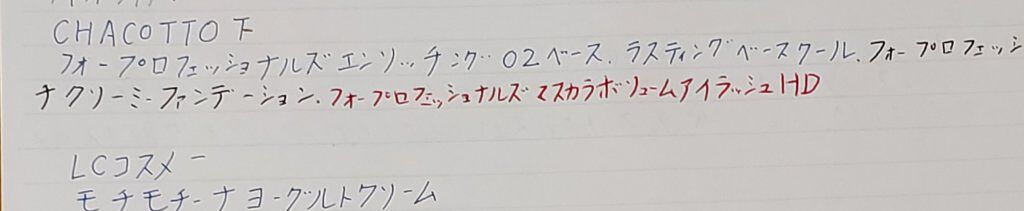 CHACOTTO 下
フォープロフェッショナルズエンリッチング 02ベース. ラスティングベースクール. フォープロフェッシ
ナクリーミーファンデーション. フォープロフェッショナルズマスカラボリュームアイラッシュHD
LCコスメー
モチモチーナヨーグルトクリーム